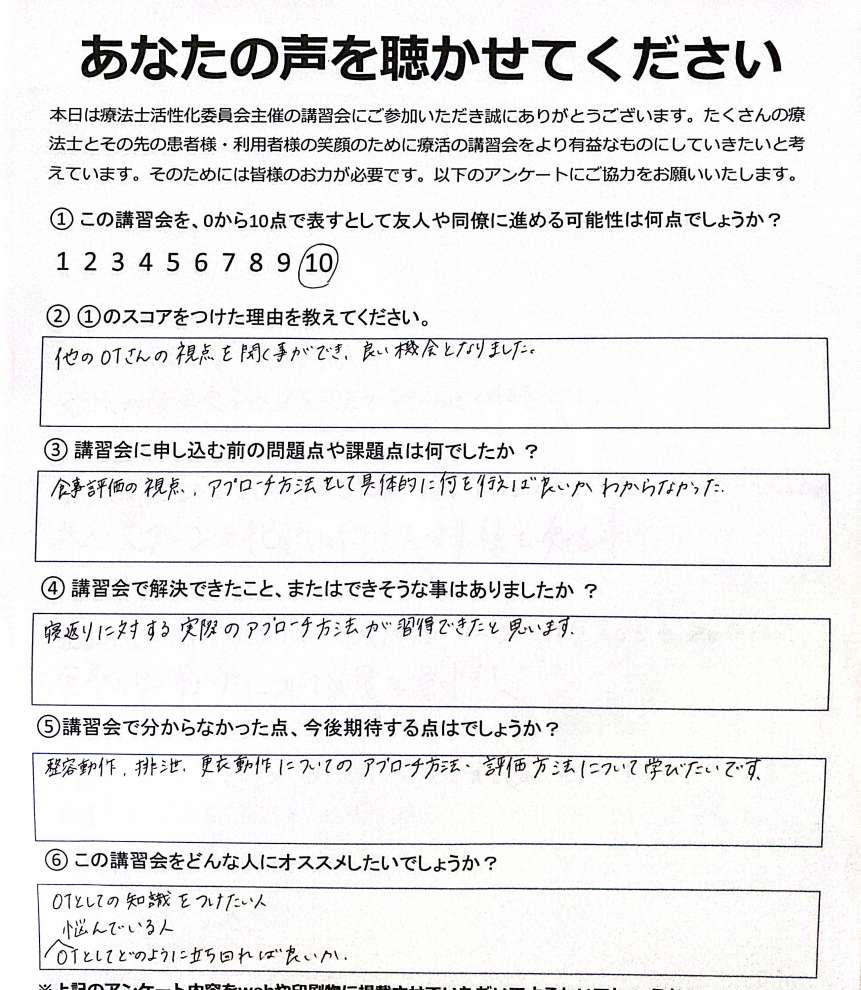 あなたの声を聴かせてください
本日は療法士活性化委員会主催の講習会にご参加いただき誠にありがとうございます。たくさんの療
法士とその先の患者様・利用者様の笑顔のために療活の講習会をより有益なものにしていきたいと考
えています。そのためには皆様のお力が必要です。以下のアンケートにご協力をお願いいたします。
① この講習会を、0から10点で表すとして友人や同僚に進める可能性は何点でしょうか？
1 2 3 4 5 6 7 8 9 10
② ①のスコアをつけた理由を教えてください。
他のOTさんの視点を聞く事ができ、良い機会となりました。
③ 講習会に申し込む前の問題点や課題点は何でしたか ？
食事評価の視点、アプローチ方法として具体的に何を行えば良いかわからなかった。
④ 講習会で解決できたこと、またはできそうな事はありましたか ？
寝返りに対する実際のアプローチ方法が習得できたと思います。
⑤講習会で分からなかった点、今後期待する点はでしょうか？
整容動作、排泄、更衣動作についてのアプローチ方法・評価方法について学びたいです。
⑥ この講習会をどんな人にオススメしたいでしょうか？
OTとしての知識をつけたい人
悩んでいる人
OTとしてどのように立ち回れば良いか、